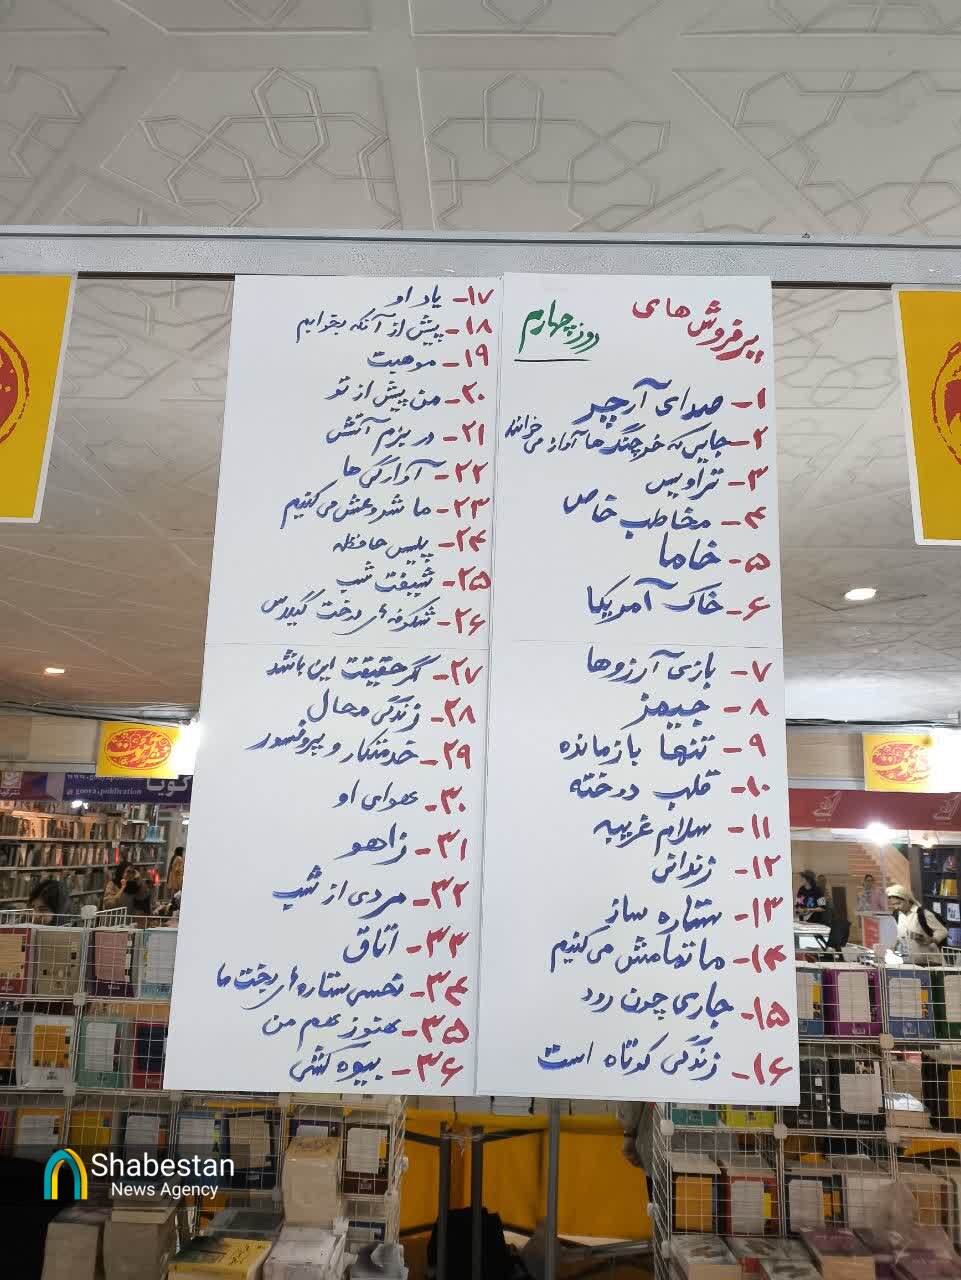 پرفروش‌های
روز چهارم
۱- صدای آرچر
۲- جایی که خرچنگ‌ها آواز می‌خوانند
۳- تراویس
۴- مخاطب خاص
۵- خاما
۶- خاک آمریکا
۷- بازی آرزوها
۸- جیمز
۹- تنها بازمانده
۱۰- قلب دوخته
۱۱- سلام غریبه
۱۲- زندانی
۱۳- ستاره ساز
۱۴- ما تمامش می‌کنیم
۱۵- جاری چون رود
۱۶- زندگی کوتاه است
۱۷- یاد او
۱۸- پیش از آنکه بخوابم
۱۹- موهبت
۲۰- من پیش از تو
۲۱- در بزم آتش
۲۲- آوارگی‌ها
۲۳- ما شروعش می‌کنیم
۲۴- پلیس حافظه
۲۵- شیفت شب
۲۶- شکوفه‌های درخت گیلاس
۲۷- گر حقیقت این باشد
۲۸- زندگی محال
۲۹- خدمتکار و پروفسور
۳۰- هوای او
۳۱- زاهو
۳۲- مردی از شب
۳۳- اتاق
۳۴- نحسی ستاره‌های بخت ما
۳۵- هنوز هم من
۳۶- بیوه کشی
www.gooya.publication
gooya.publication
گویا
Shabestan
News Agency